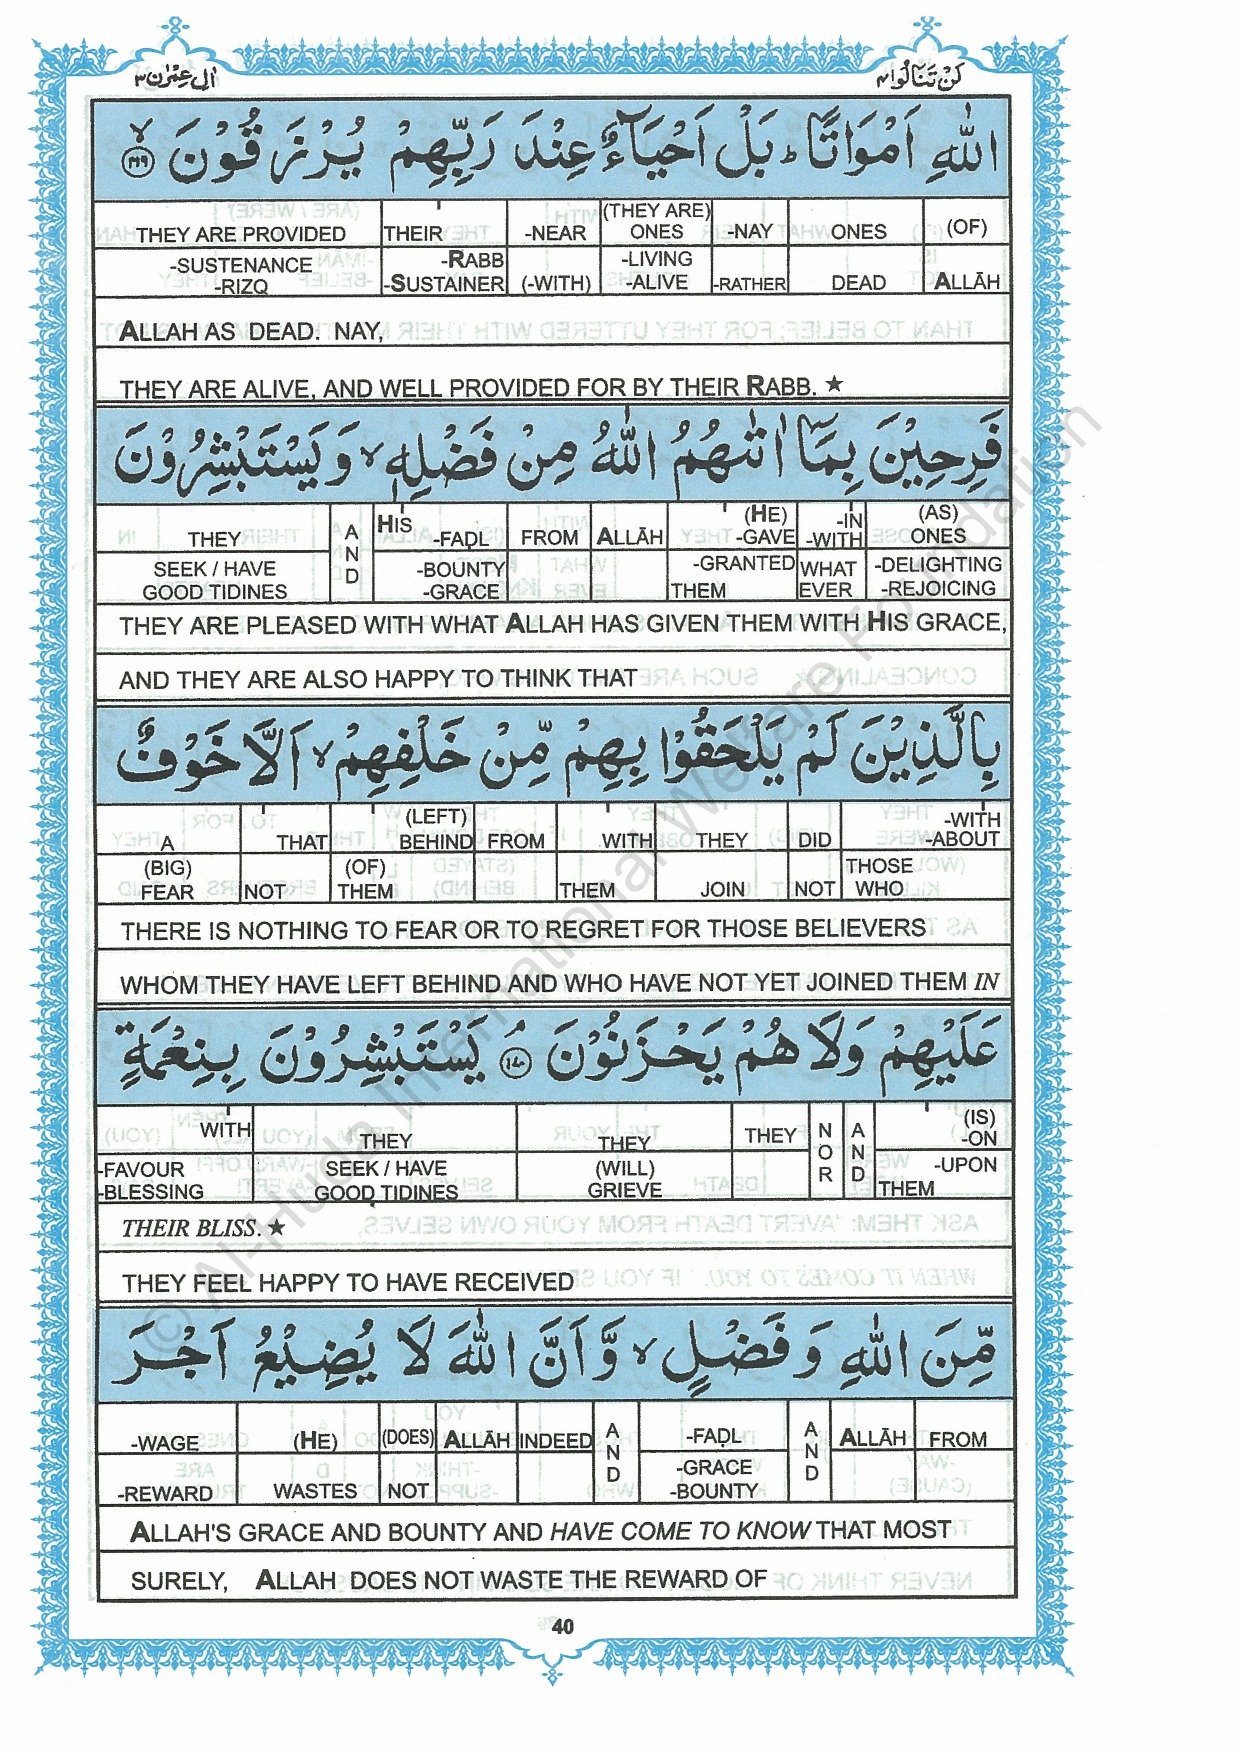 اٰل عِمْرٰن ٣
لَنْ تَنَالُوا ٤
اللّٰهِ اَمْوَاتًا ؕ بَلْ اَحْيَآءٌ عِنْدَ رَبِّهِمْ يُرْزَقُوْنَ ۙ ١٦٩
(OF) ALLĀH
ONES DEAD
-NAY -RATHER
(THEY ARE) ONES -LIVING -ALIVE
-NEAR (-WITH)
THEIR -RABB -SUSTAINER
THEY ARE PROVIDED -SUSTENANCE -RIZQ
ALLAH AS DEAD. NAY,
THEY ARE ALIVE, AND WELL PROVIDED FOR BY THEIR RABB. ★
فَرِحِيْنَ بِمَاۤ اٰتٰىهُمُ اللّٰهُ مِنْ فَضْلِهٖ ۙ وَيَسْتَبْشِرُوْنَ
(AS) ONES -DELIGHTING -REJOICING
-IN -WITH WHAT EVER
(HE) -GAVE -GRANTED THEM
ALLĀH
FROM
HIS -FAḌL -BOUNTY -GRACE
AND
THEY SEEK / HAVE GOOD TIDINES
THEY ARE PLEASED WITH WHAT ALLAH HAS GIVEN THEM WITH HIS GRACE,
AND THEY ARE ALSO HAPPY TO THINK THAT
بِالَّذِيْنَ لَمْ يَلْحَقُوْا بِهِمْ مِّنْ خَلْفِهِمْ ۙ اَلَّا خَوْفٌ
-WITH -ABOUT THOSE WHO
DID NOT
THEY JOIN
WITH THEM
FROM
(LEFT) BEHIND (OF) THEM
THAT NOT
A (BIG) FEAR
THERE IS NOTHING TO FEAR OR TO REGRET FOR THOSE BELIEVERS
WHOM THEY HAVE LEFT BEHIND AND WHO HAVE NOT YET JOINED THEM IN
عَلَيْهِمْ وَلَا هُمْ يَحْزَنُوْنَ ۘ ١٧٠ يَسْتَبْشِرُوْنَ بِنِعْمَةٍ
(IS) -ON -UPON THEM
AND
NOR
THEY
THEY (WILL) GRIEVE
THEY SEEK / HAVE GOOD TIDINES
WITH -FAVOUR -BLESSING
THEIR BLISS. ★
THEY FEEL HAPPY TO HAVE RECEIVED
مِّنَ اللّٰهِ وَفَضْلٍ ۙ وَّاَنَّ اللّٰهَ لَا يُضِيْعُ اَجْرَ
FROM
ALLĀH
AND
-FAḌL -GRACE -BOUNTY
AND
INDEED
ALLĀH
(DOES) NOT
(HE) WASTES
-WAGE -REWARD
ALLAH'S GRACE AND BOUNTY AND HAVE COME TO KNOW THAT MOST
SURELY, ALLAH DOES NOT WASTE THE REWARD OF
40
© Al-Huda International Welfare Foundation